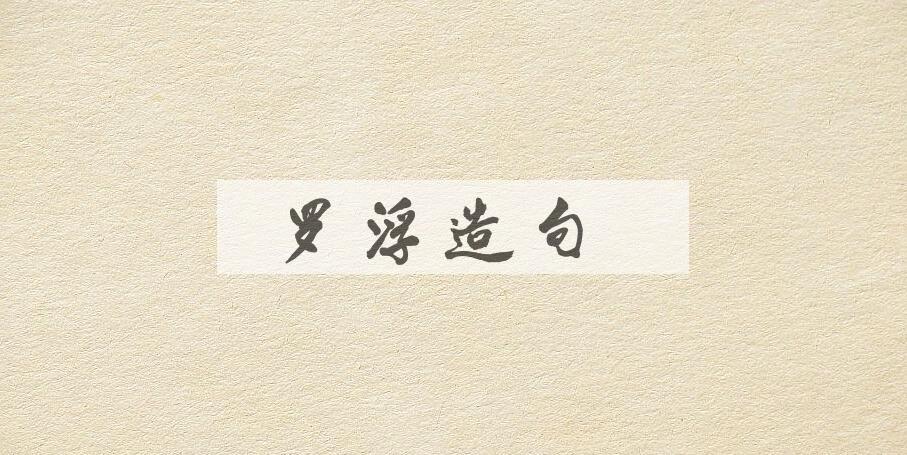 罗浮造句